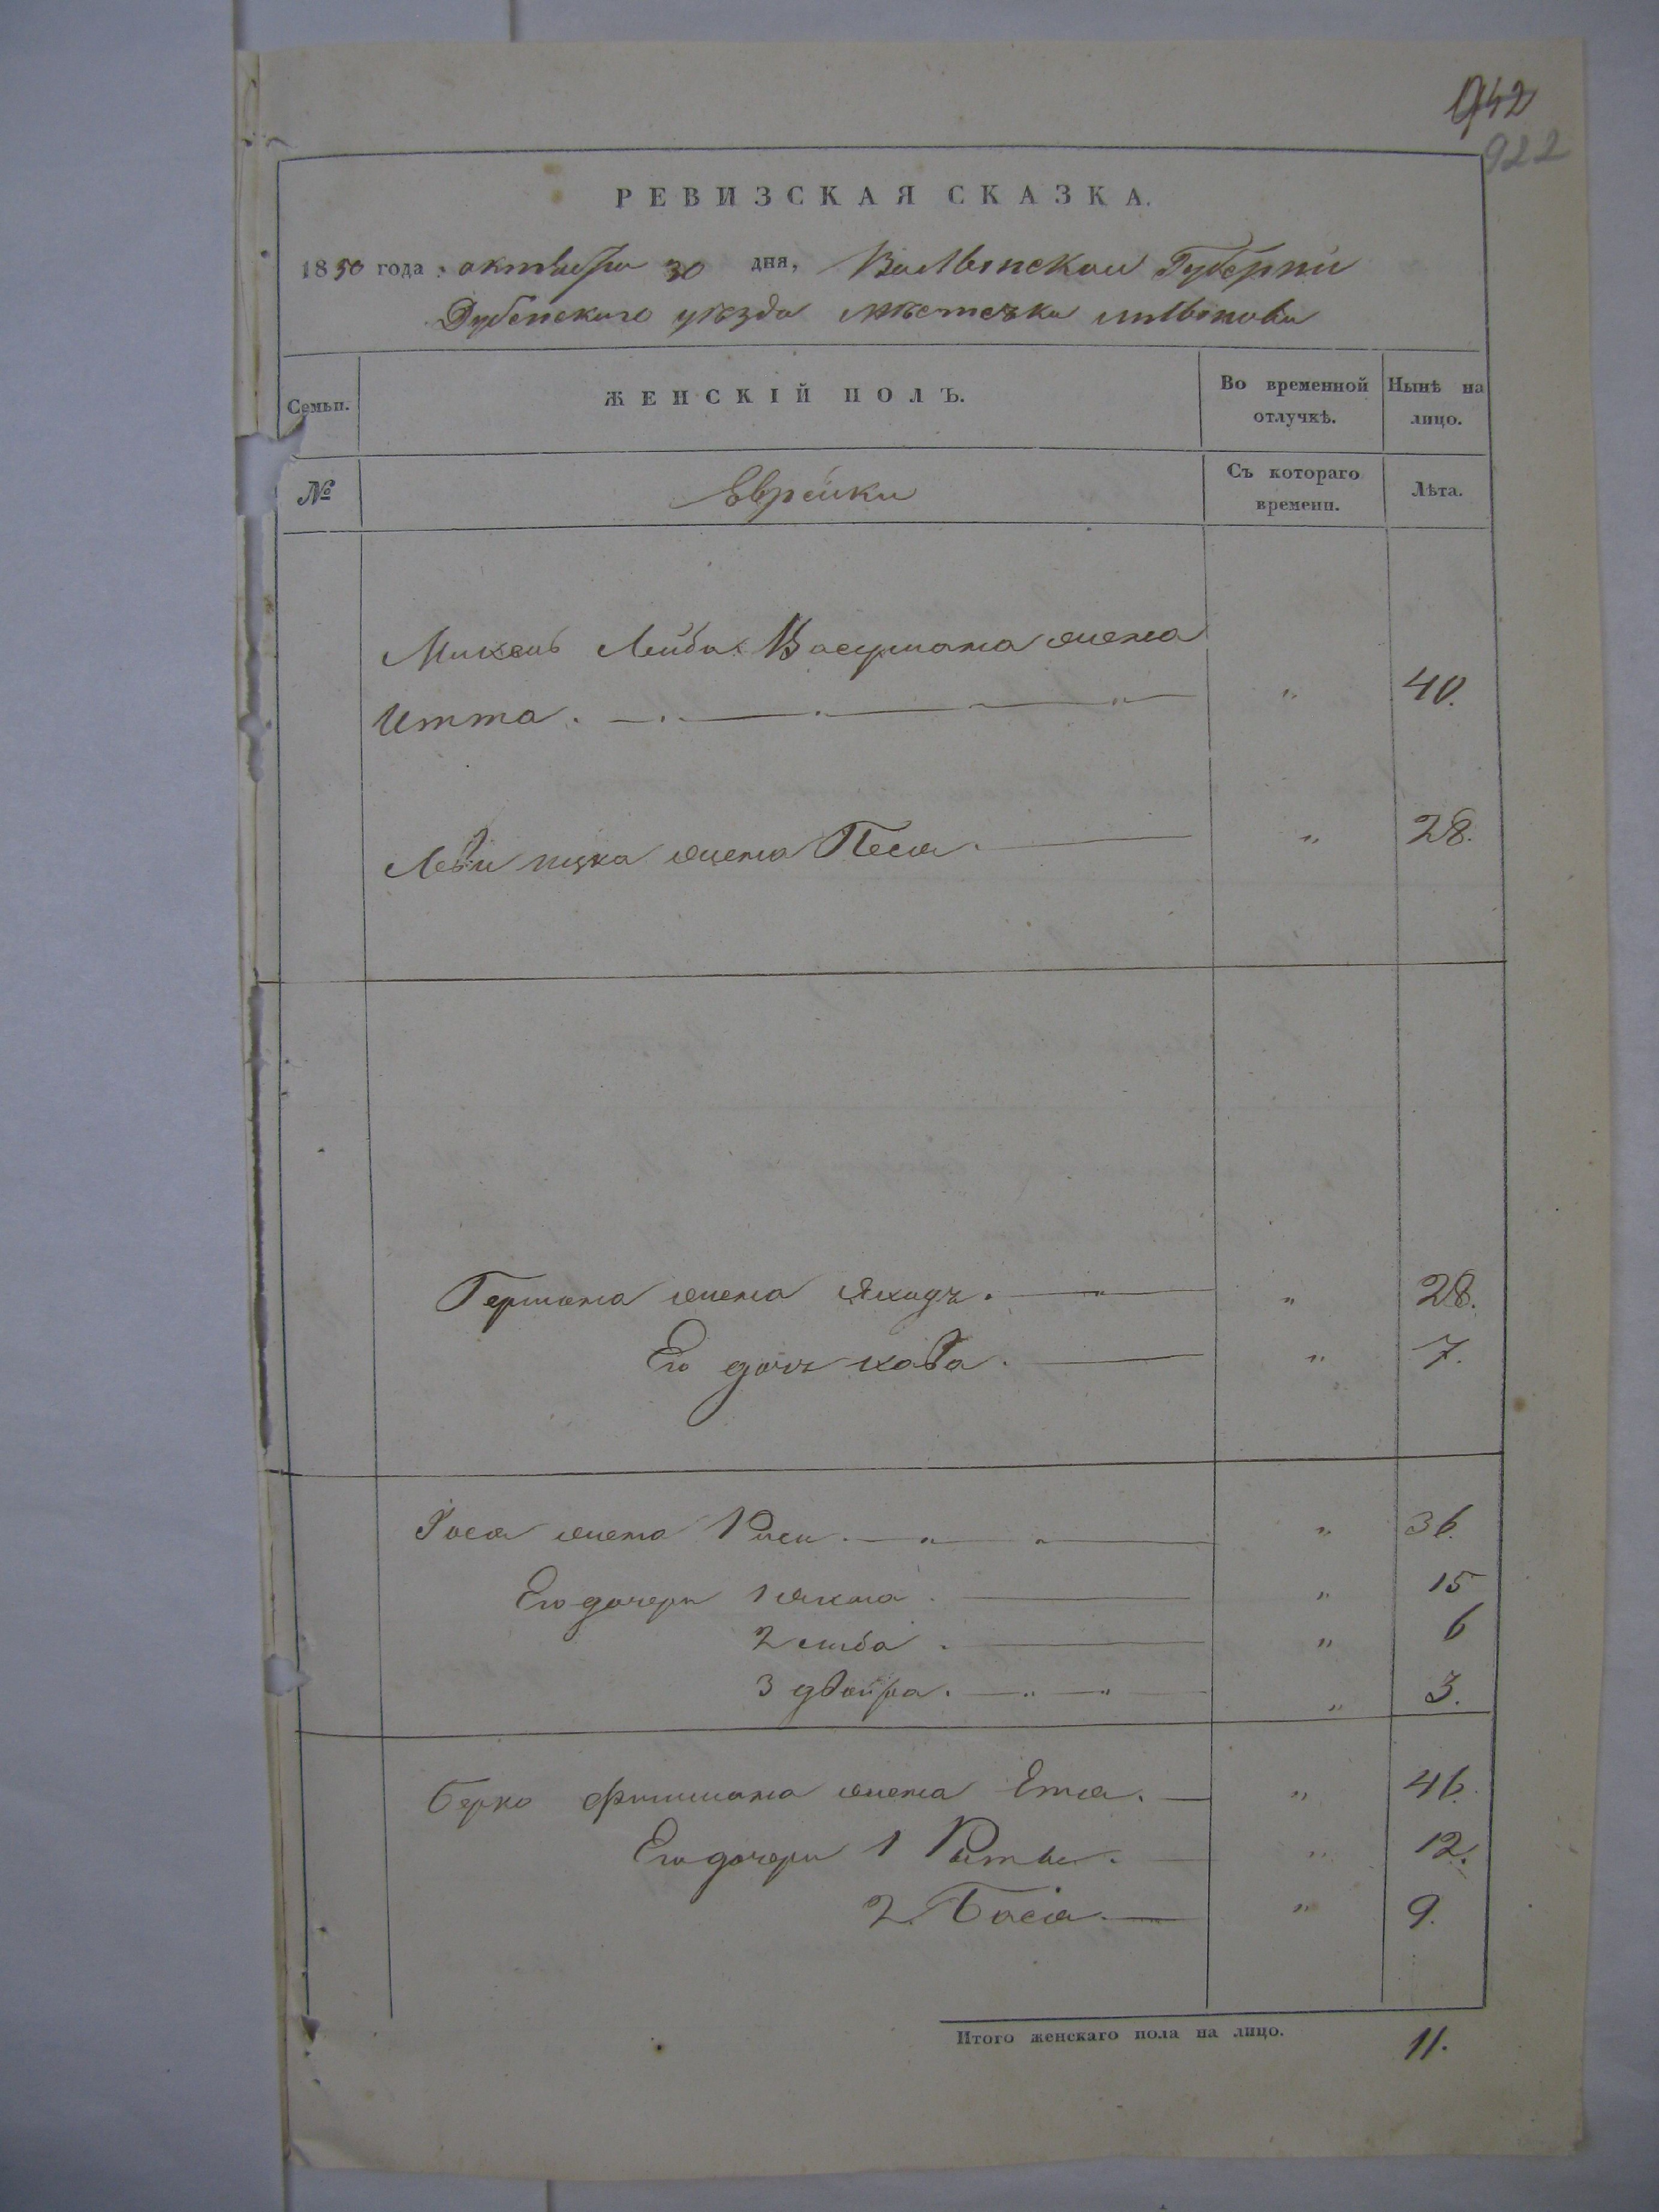 942
922
РЕВИЗСКАЯ СКАЗКА.
1850 года, октября 30 дня, Волынской Губерніи
Дубенскаго уѣзда мѣстечка млынова
Семьи.
ЖЕНСКІЙ ПОЛЪ.
Во временной отлучкѣ.
Нынѣ на лицо.
№
Еврейки
Съ котораго времени.
Лѣта.
Лейба Васермана жена
Итта. " 40.
Леви ицка жена Песя. " 28.
Германа жена " 28.
Его дочь хова. " 7.
жена Риси. " 36.
Его дочери 1 " 15
2 " 6
3 двойра. " 3.
Берко Фишмана жена Етя. " 46.
Его дочери 1 " 12.
2. Бася. " 9.
Итого женскаго пола на лицо. 11.